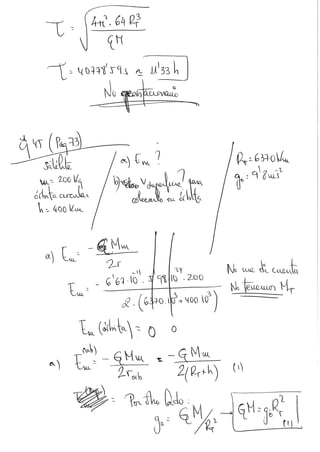 T = √(4π² · 64 R_T³ / GM)
T = 40778'59 s ≈ 11'33 h
No geoestacionario
Ej 45 (Pag 73)
Satélite
m = 200 Kg
órbita circular
h = 400 Km
a) Em?
b) V superficie? para
colocarlo en órbita
R_T = 6370 Km
g₀ = 9'8 m/s²
a) Em = -GMm / 2r
Em = - 6'67·10⁻¹¹ · 5'98·10²⁴ · 200 / 2·(6370·10³ + 400·10³)
No me di cuenta
No tenemos M_T
Em (órbita) = 0 0
a) Em (orb) = -GMm / 2r_orb = -GMm / 2(R_T+h) (1)
= Por otro lado:
g₀ = GM/R_T² → GM = g₀R_T² (1)